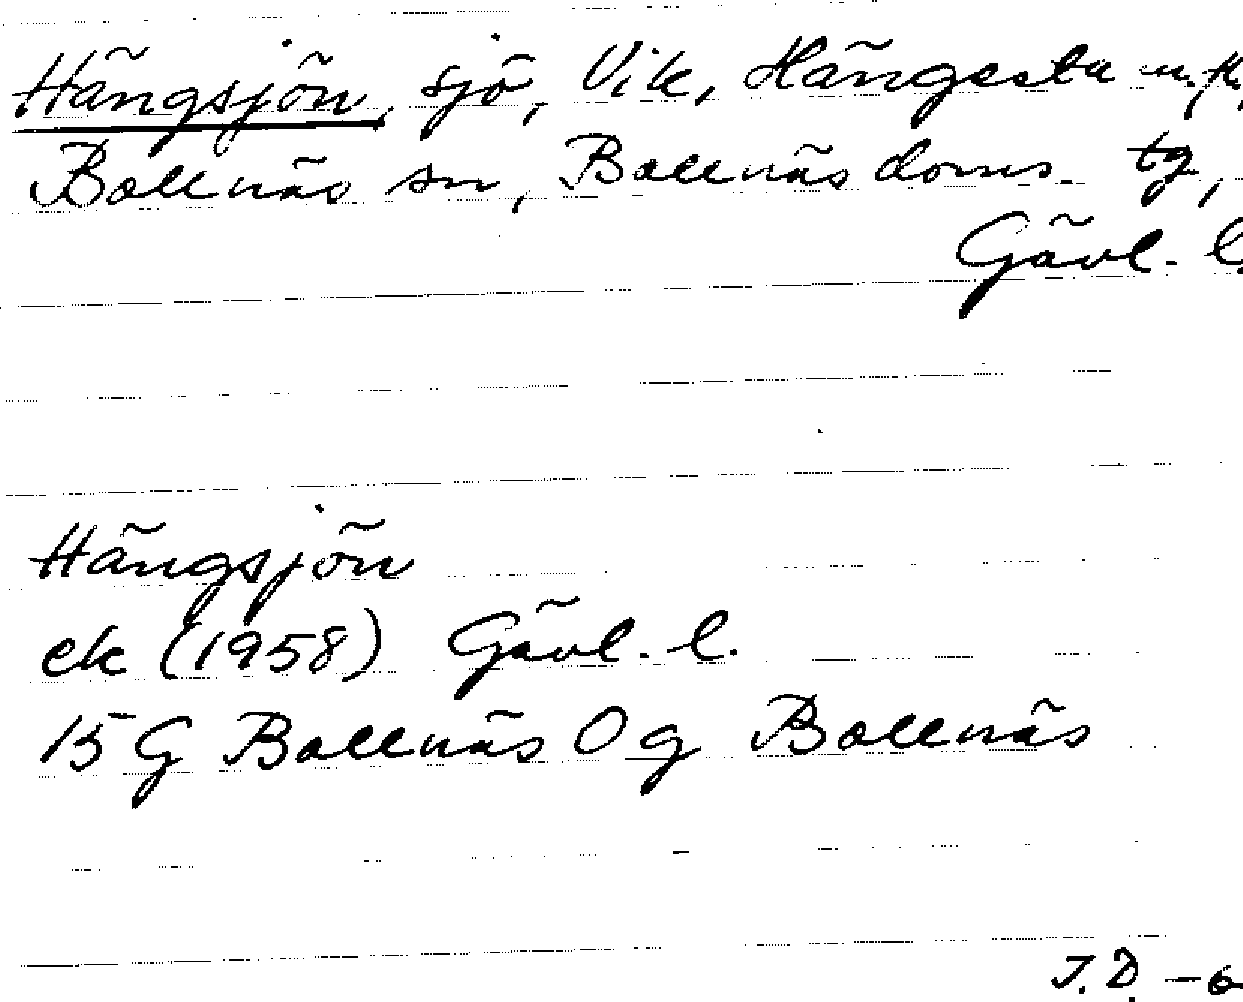 Hängsjön, sjö, Vik, Hängesta m.fl.,
Bollnäs sn, Bollnäs doms. tg,
Gävl. l.
Hängsjön
ek (1958) Gävl. l.
15 G Bollnäs 0 g Bollnäs
J. D. -6